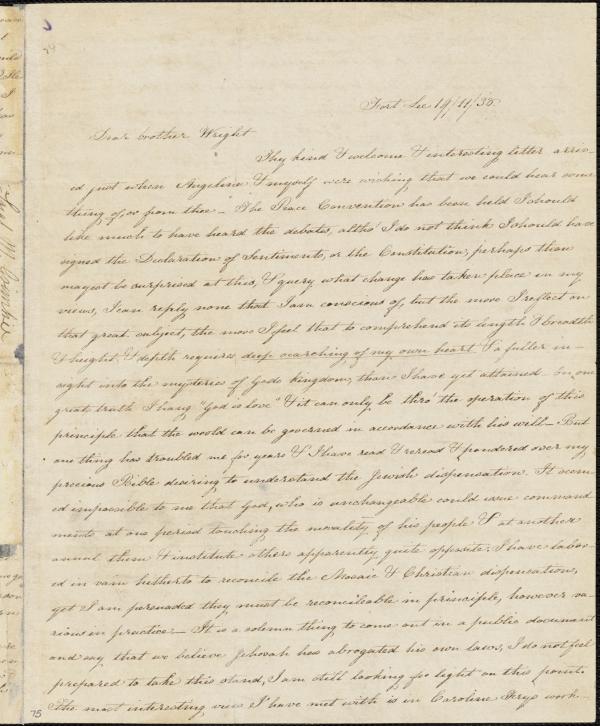 Fort Lee 19/11/38.
Dear brother Wright
Thy kind & welcome & interesting letter arriv-
ed just when Angelina & myself were wishing that we could hear some
thing of, or from thee – The Peace Convention has been held I should
like much to have heard the debates, altho' I do not think I should have
signed the Declaration of Sentiments, or the Constitution; perhaps thou
mayest be surprised at this, & query what change has taken place in my
views, I can reply none that I am conscious of, but the more I reflect on
that great subject, the more I feel that to comprehend its length & breadth
& height & depth requires deep searching of my own heart & a fuller in-
sight into the mysteries of Gods kingdom, than I have yet attained. On one
great truth I hang "God is love" & it can only be thro' the operation of this
principle that the world can be governed in accordance with his will – But
one thing has troubled me for years & I have read & reread & pondered over my
precious Bible desiring to understand the Jewish dispensation. It seem-
ed impossible to me that God, who is unchangeable could issue command
ments at one period touching the morality of his people & at another
annul them & institute others apparently quite opposite. I have labor-
ed in vain hitherto to reconcile the Mosaic & Christian dispensation,
yet I am persuaded they must be reconcileable in principle, however va-
rious in practice – It is a solemn thing to come out in a public document
and say that we believe Jehovah has abrogated his own laws, I do not feel
prepared to take this stand, I am still looking for light on this point.
The most interesting view I have met with is in Caroline Frys work
75